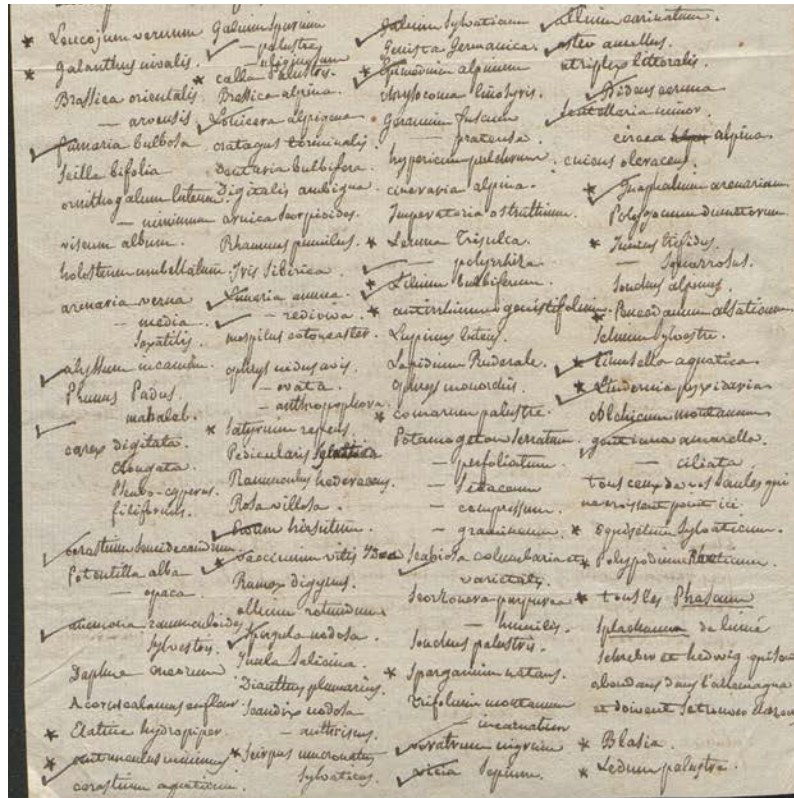 * Leucojum vernum
* galanthus nivalis.
Brassica orientalis
— arvensis
fumaria bulbosa
Scilla bifolia
ornithogalum luteum.
— minimum
viscum album.
holosteum umbellatum.
arenaria verna
— media
Saxatilis.
alyssum incanum
Prunus Padus.
mahaleb.
carex digitata.
elongata.
Pseudo-cyperus.
filiformis.
cerastium Semidecandrum
Potentilla alba
— opaca.
anemona ranunculoides
Sylvestris.
Daphne meoreum
Acorus calamus en fleur
* Elatine hydropiper.
* centunculus minimus
cerastium aquaticum.
Galium Spurium
— palustre
— uliginosum
* calla Palustris.
Brassica alpina.
Lonicera alpigena
cratagus torminalis.
Dentaria bulbifera.
Digitalis ambigua.
arnica Scorpioides.
Rhamnus pumilus.
Iris Sibirica.
Lunaria annua.
— rediviva.
mespilus cotoneaster.
ophrys nidus avis.
— ovata.
— anthropophora.
* Satyrium repens.
Pedicularis Sylvatica
Ranunculus hederaceus.
Rosa villosa.
Ervum hirsutum.
* Vaccinium vitis Idea
Rumex digynus.
allium rotundum.
Spergula nodosa.
Inula Salicina.
Dianthus plumarius.
Scandix nodosa
— anthriscus.
* Scirpus mucronatus
Sylvaticus.
galium Sylvaticum
Genista Germanica.
* Epimedium alpinum
chrysocoma linosyris.
Geranium fuscum
— pratense.
hypericum pulchrum.
cineraria alpina.
Imperatoria ostruthium.
* Lemna Trisulca.
— polyrrhiza
* Lilium bulbiferum.
* antirrhinum genistifolium.
Lupinus luteus.
Lepidium Ruderale.
Ophrys monorchis.
* comarum palustre.
Potamogeton Serratum.
— perfoliatum.
— Setaceum
— compressum.
— gramineum.
Scabiosa columbaria et
varietates.
Scorzonera purpurea
— humilis.
Sonchus palustris.
* Sparganium natans.
trifolium montanum
— incarnatum
veratrum nigrum
vicia Sepium.
allium carinatum.
aster amellus.
atriplex littoralis.
Bidens cernua
Scutellaria minor.
circea alpina.
cnicus oleraceus.
* Gnaphalium arenarium
Polygonum dumetorum.
* Juncus trifidus.
— Squarrosus.
Sonchus alpinus.
* Peucedanum alsaticum.
Selinum Sylvestre.
* Limosella aquatica.
* Lindernia pyxidaria
colchicum montanum
gentiana amarella.
— ciliata
tous ceux de vos Saules qui
ne croissent point ici.
* Equisetum Sylvaticum.
* Polypodium Rhaeticum.
* tous les Phascum
Splachnum de Linné
Schreber et hedwig qui sont
abondans dans l'allemagne
et doivent se trouver chez vous
* Blasia.
* Ledum palustre.